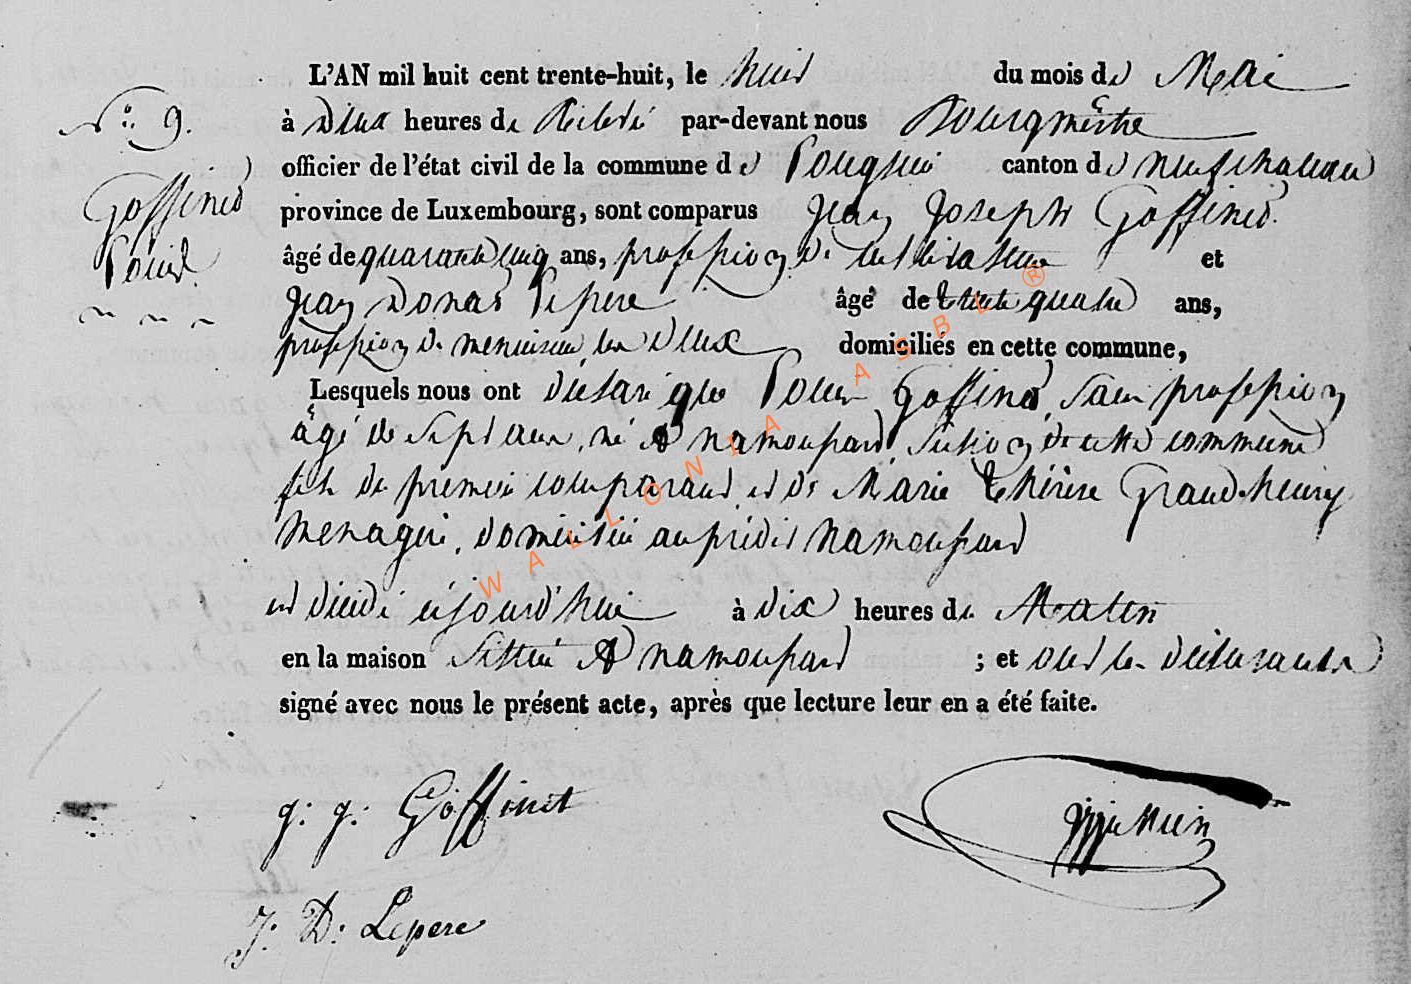 L'AN mil huit cent trente-huit, le huit du mois de Mai
N.º 9. à Deux heures de Relevé par-devant nous Bourgmestre
officier de l'état civil de la commune de canton de neufchateau
Goffinet province de Luxembourg, sont comparus Jean Joseph Goffinet
Louis âgé de quarante cinq ans, profession de cultivateur et
Jean Donat Lepere âgé de trente quatre ans,
profession de menuisier, les deux domiciliés en cette commune,
Lesquels nous ont déclaré que Louis Goffinet, sans profession
âgé de sept ans, né à namoussart, section de cette commune
fils du premier comparant et de Marie Thérèse Grandhenry
menagère, domiciliée au prédit Namoussart
est décédé cejourd'hui à dix heures du Matin
en la maison sittuée à namoussart ; et ont les déclarants
signé avec nous le présent acte, après que lecture leur en a été faite.
g. g. Goffinet
J: D: Lepere
WALLONIA ASBL ®